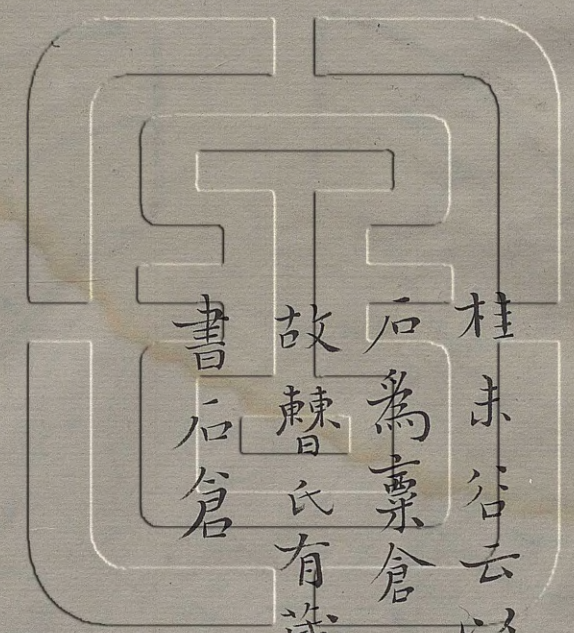 桂未谷云
石為稟倉
故㯥氏有
書石倉